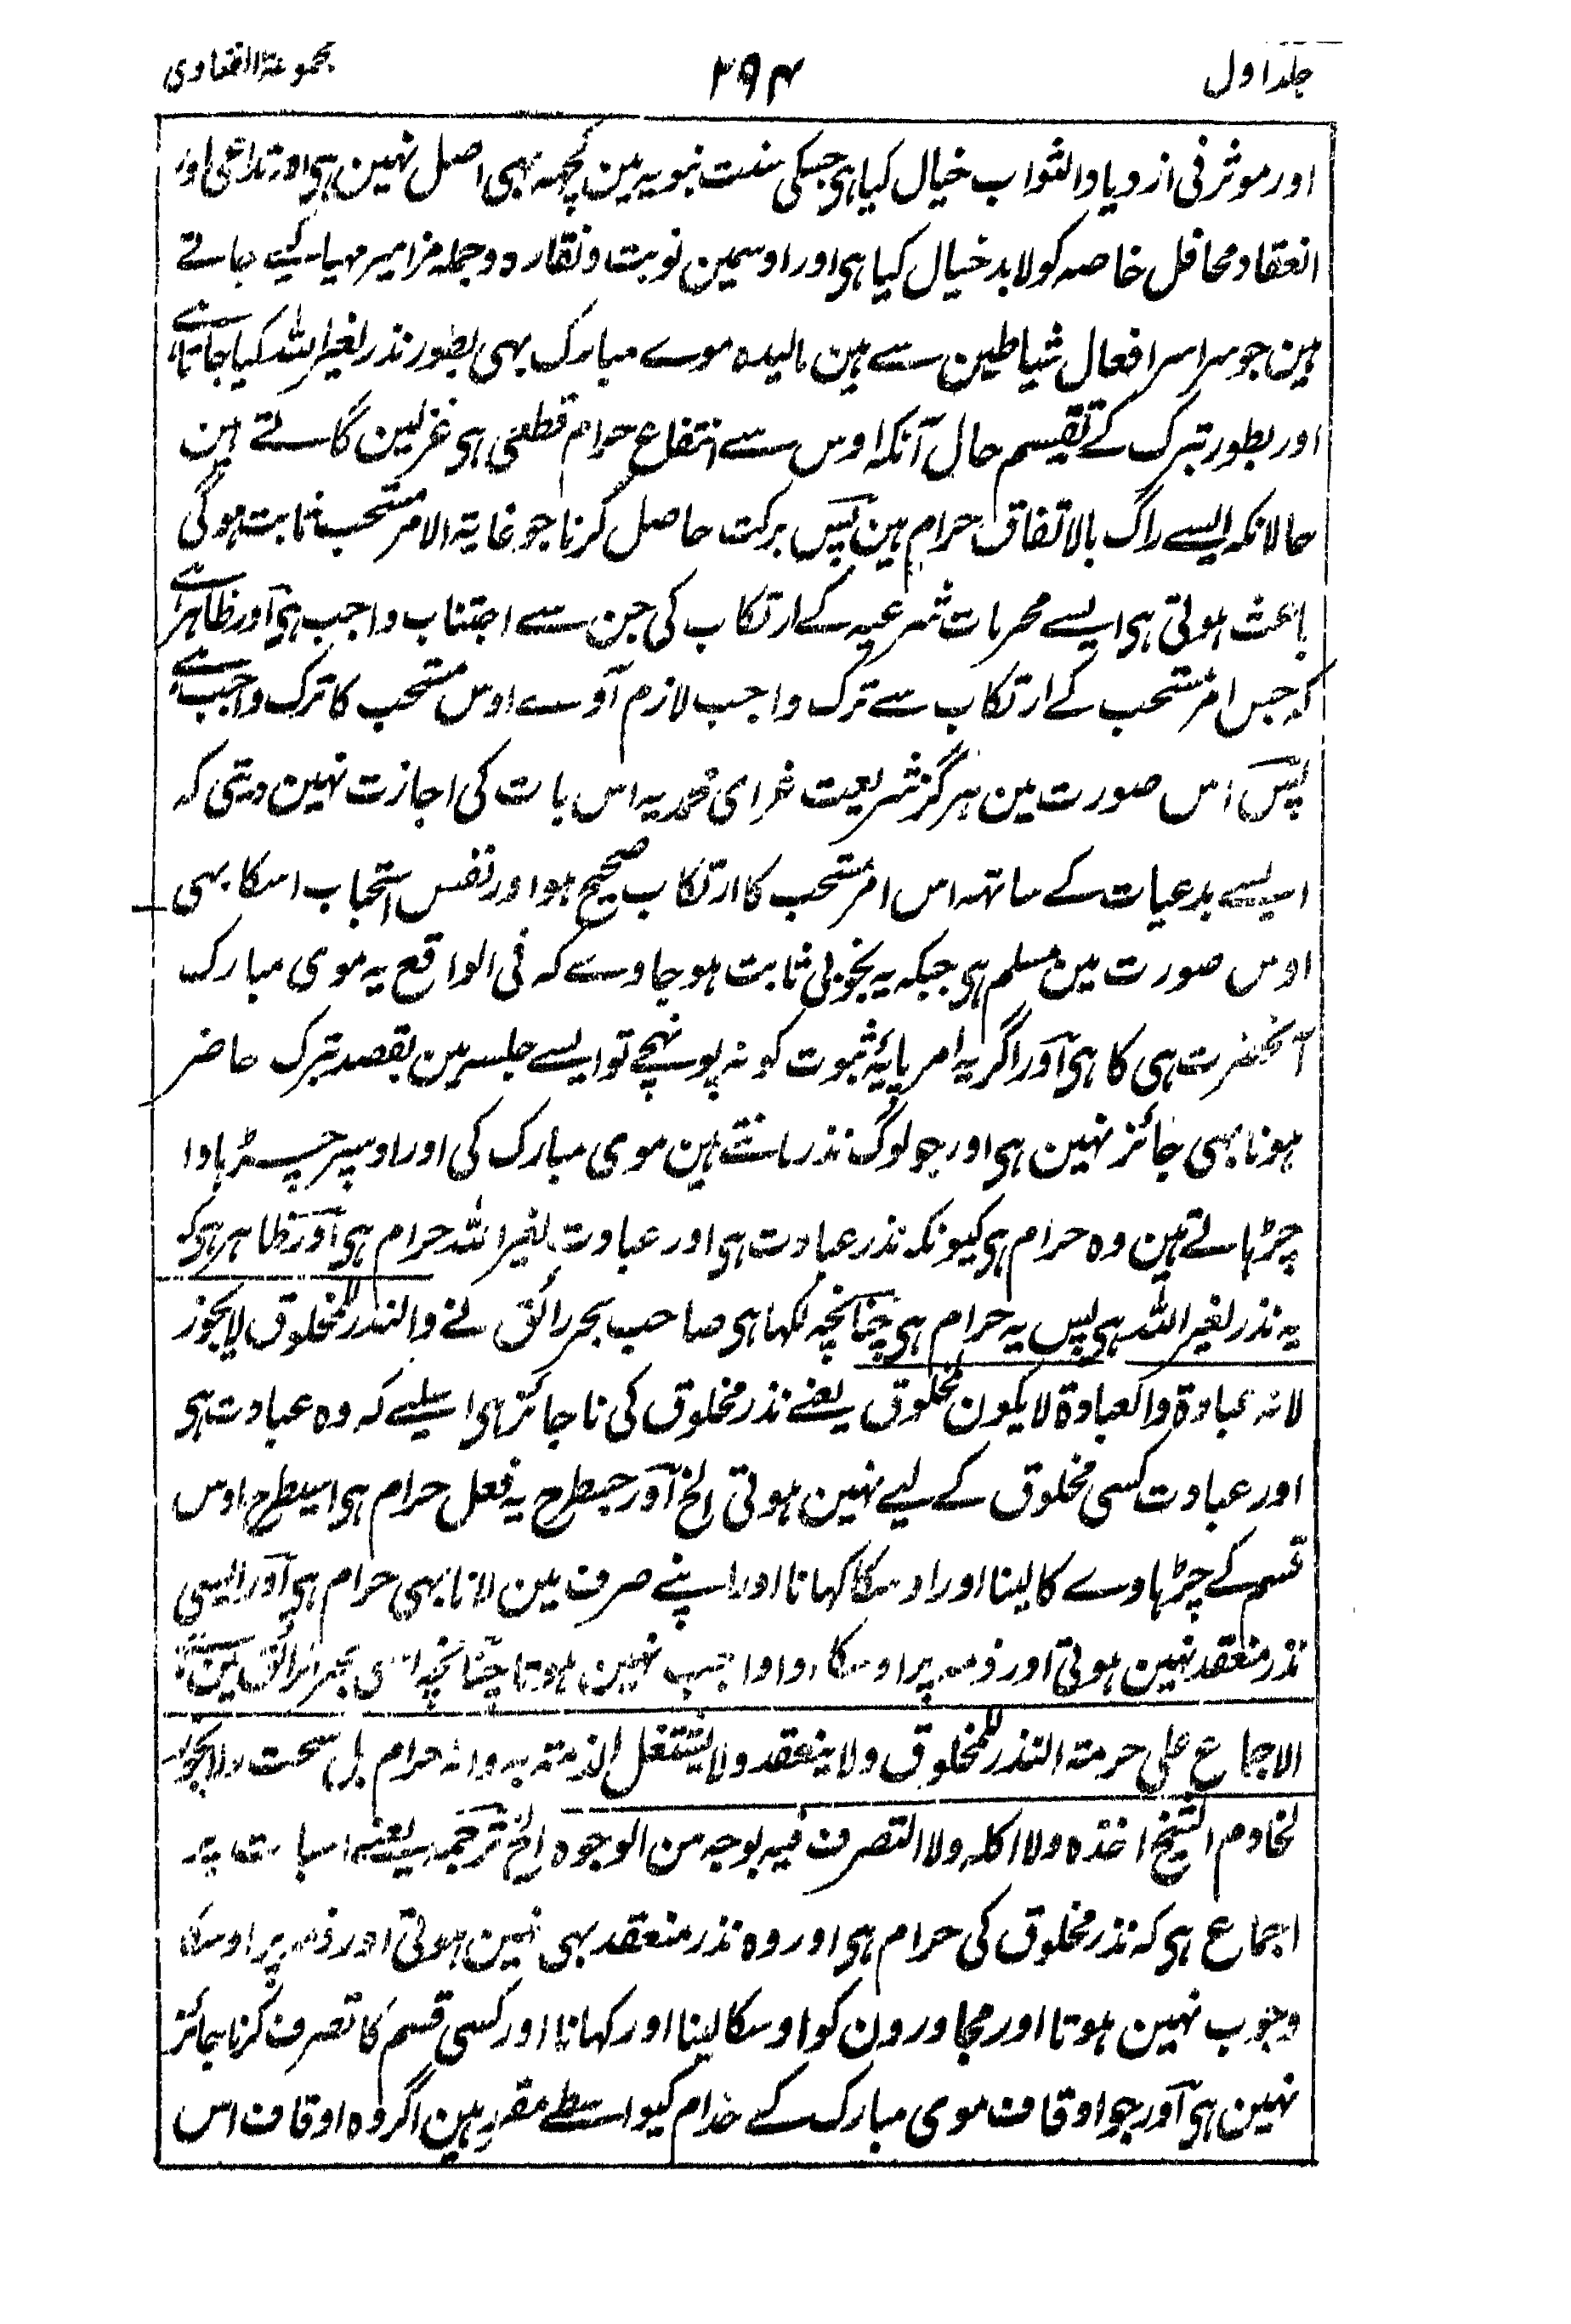 جلد اول
۳۹۴
مجموعۃ الفتاوی
اور موثر فی ازدیاد الثواب خیال کیا ہی جسکی سنت نبویہ مین کچہہ بہی اصل نہین ہی اور تداعی اور
انعقاد محافل خاصہ کو لابد خیال کیا ہی اور اوسمین نوبت و نقارہ و جملہ مزامیر مہیا کیے جاتے
ہین جو سراسر افعال شیاطین سے ہین مالیدہ موے مبارک بہی بطور نذر لغیر اللہ کیا جاتا ہے
اور بطور تبرک کے تقسیم حال آنکہ اوس سے انتفاع حرام قطعی ہی غزلین گاتے ہین
حالانکہ ایسے راگ بالاتفاق حرام ہین پس برکت حاصل کرنا جو غایۃ الامر مستحب ثابت ہوگی
باعث ہوتی ہی ایسے محرمات شرعیہ کے ارتکاب کی جن سے اجتناب واجب ہی اور ظاہر ہے
کہ جس امر مستحب کے ارتکاب سے ترک واجب لازم آوے اوس مستحب کا ترک واجب ہے
پس اس صورت مین ہرگز شریعت غرای محمدیہ اس بات کی اجازت نہین دیتی کہ
ایسے بدعیات کے ساتہہ اس امر مستحب کا ارتکاب صحیح ہو اور نفس استحباب اسکا بہی
اوس صورت مین مسلم ہی جبکہ یہ بخوبی ثابت ہو جاوے کہ فی الواقع یہ موی مبارک
آنحضرت ہی کا ہی اور اگر یہ امر پایۂ ثبوت کو نہ پہونچے تو ایسے جلسہ مین بقصد تبرک حاضر
ہونا بہی جائز نہین ہی اور جو لوگ نذر مانتے ہین موی مبارک کی اور اوسپر چڑہاوا
چڑہاتے ہین وہ حرام ہی کیونکہ نذر عبادت ہی اور عبادت لغیر اللہ حرام ہی اور ظاہر ہی کہ
یہ نذر لغیر اللہ ہی پس یہ حرام ہی چنانچہ لکہا ہی صاحب بحر رائق نے والنذر للمخلوق لا یجوز
لانہ عبادۃ والعبادۃ لا یکون لمخلوق یعنے نذر مخلوق کی ناجائز ہی اسلیے کہ وہ عبادت ہی
اور عبادت کسی مخلوق کے لیے نہین ہوتی الخ اور جسطرح یہ فعل حرام ہی اسیطرح اوس
قسم کے چڑہاوے کا لینا اور اوسکا کہانا اور اپنے صرف مین لانا بہی حرام ہی اور ایسی
نذر منعقد نہین ہوتی اور ذمہ پر اوسکا ادا واجب نہین ہوتا چنانچہ اسی بحر الرائق مین ہے
الاجماع علی حرمۃ النذر للمخلوق ولا ینعقد ولا یشتغل الذمۃ بہ وانہ حرام بل سحت ولا یجوز
لخادم الشیخ اخذہ ولا اکلہ ولا التصرف فیہ بوجہ من الوجوہ الخ ترجمہ یعنے اسبات پر
اجماع ہی کہ نذر مخلوق کی حرام ہی اور وہ نذر منعقد بہی نہین ہوتی اور ذمہ پر اوسکا
وجوب نہین ہوتا اور مجاورون کو اوسکا لینا اور کہانا اور کسی قسم کا تصرف کرنا جائز
نہین ہی اور جو اوقاف موی مبارک کے خدام کیواسطے مقرر ہین اگر وہ اوقاف اس